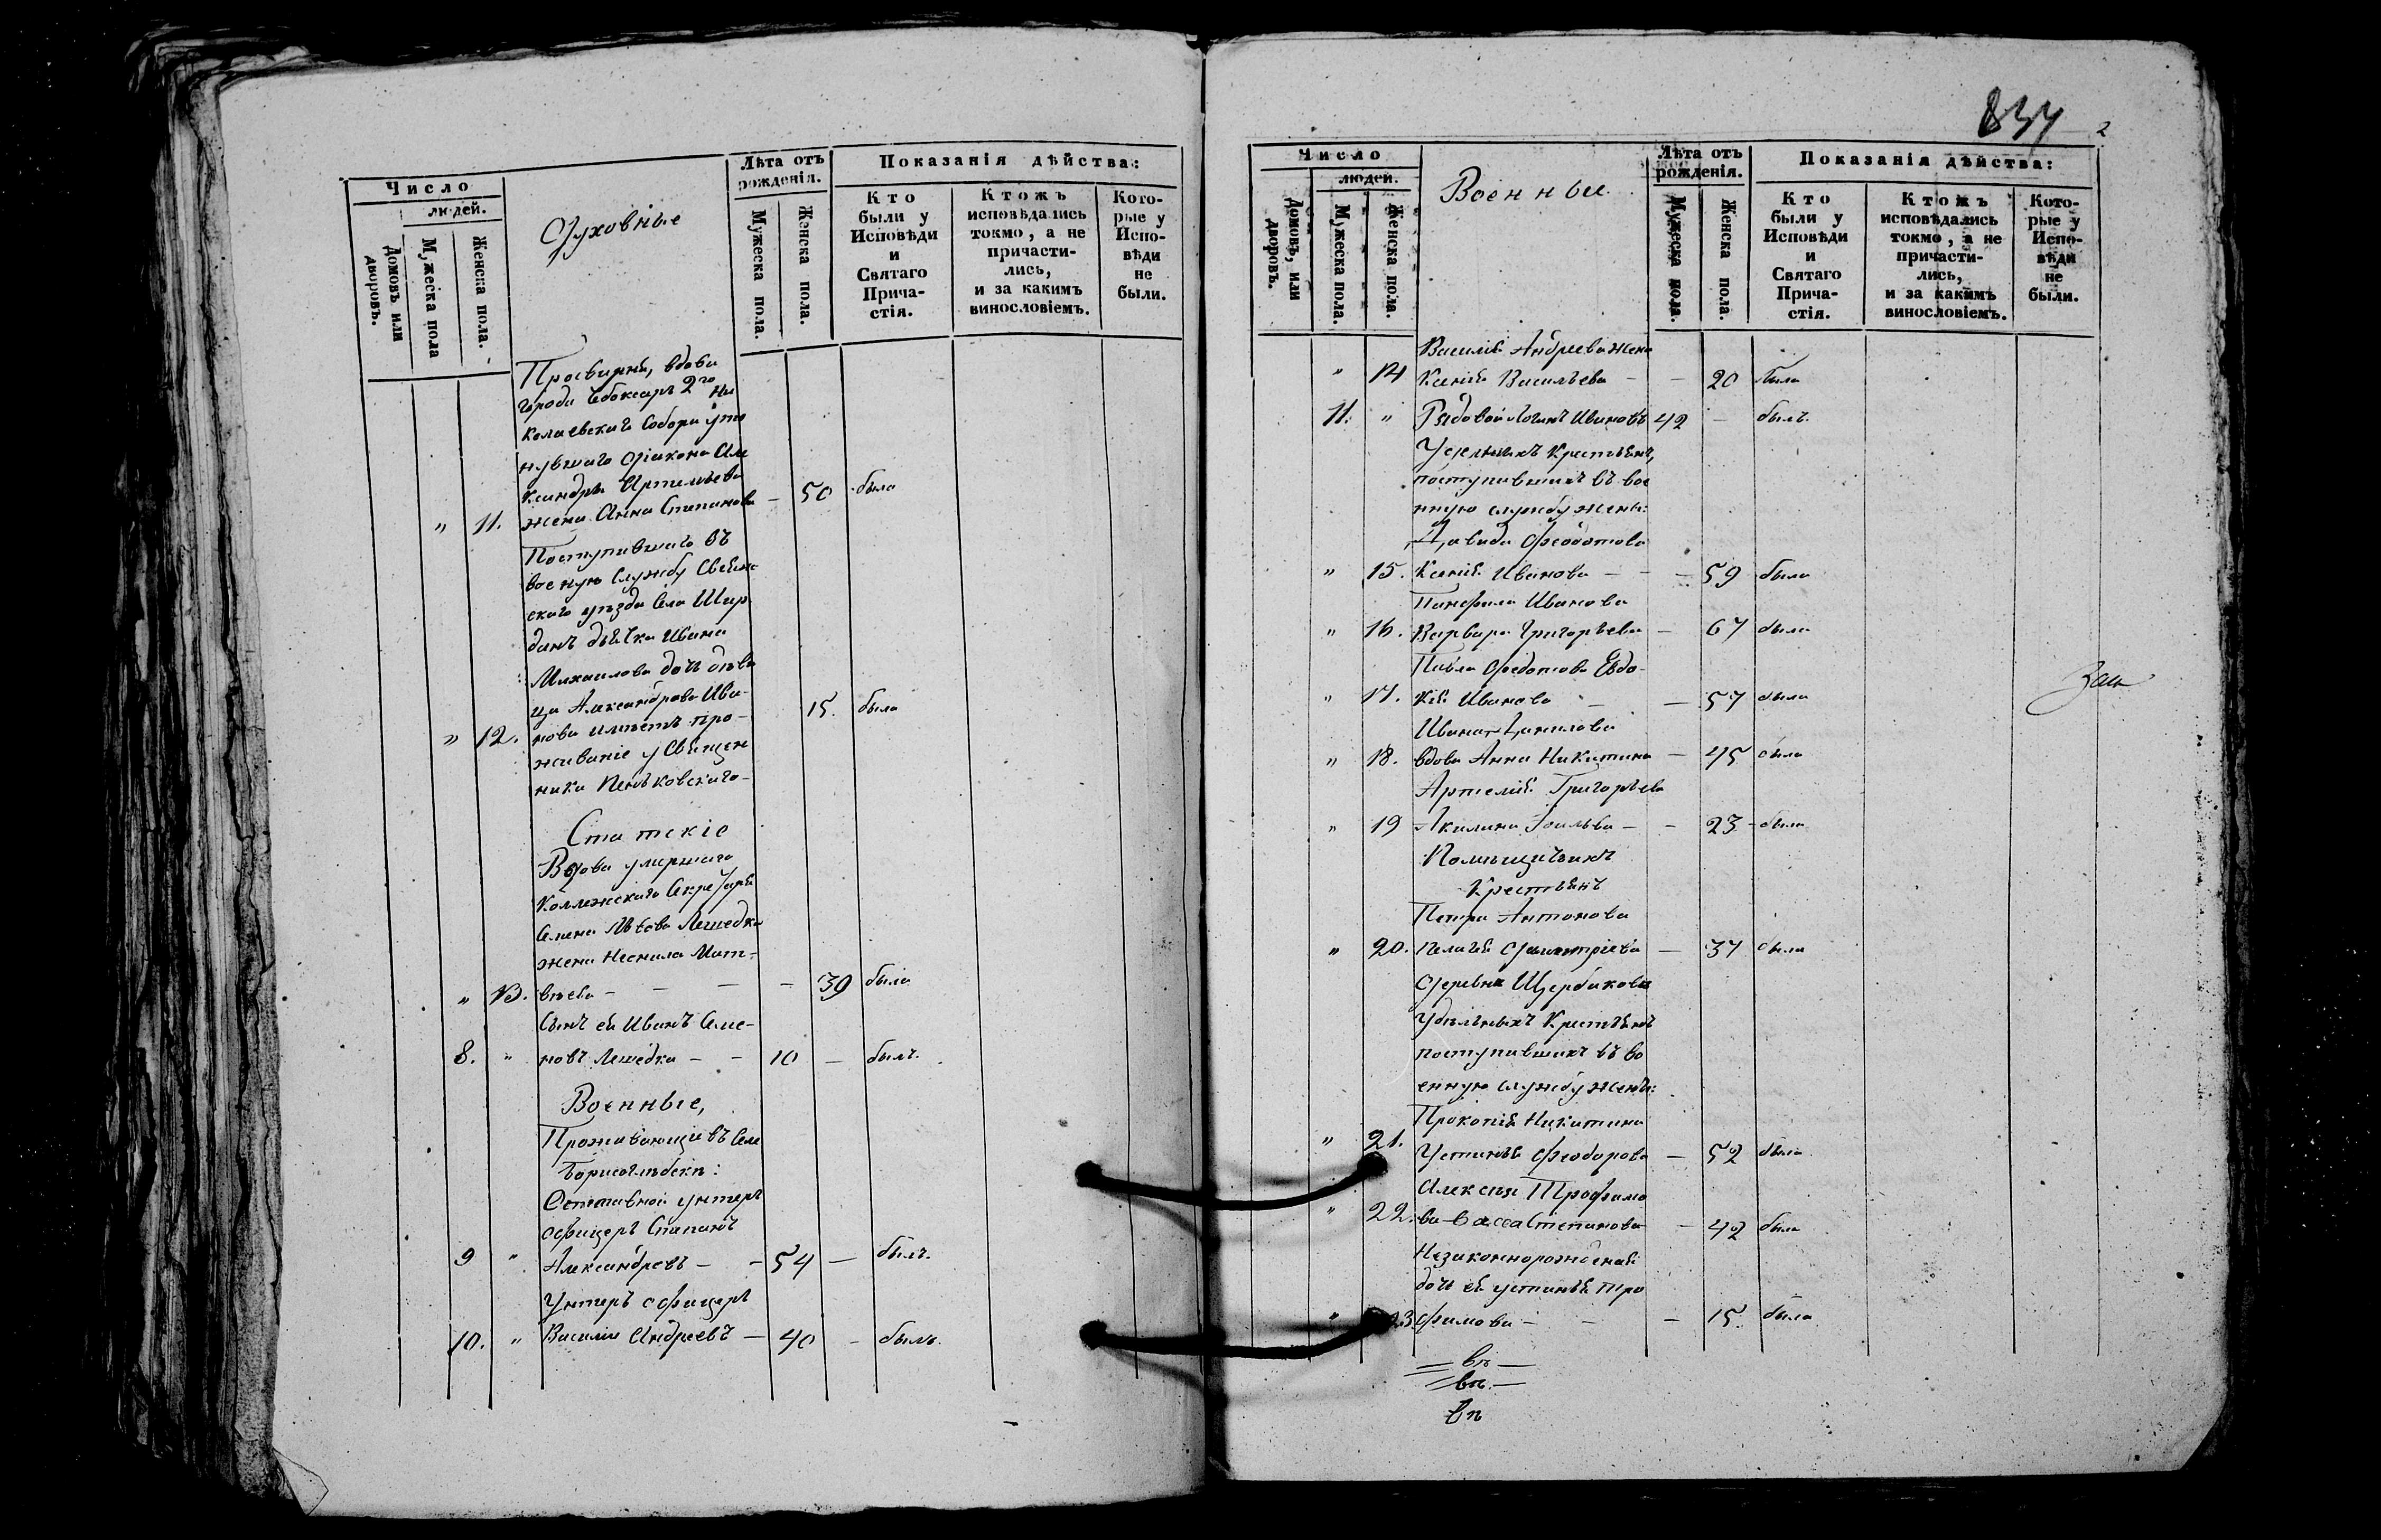 Число
людей.
Домовъ или дворовъ.
Мужеска пола
Женска пола.
Духовные
Лѣта отъ рожденія.
Мужеска пола.
Женска пола.
Показанія дѣйства:
Кто были у Исповѣди и Святаго Прича-стія.
Ктожъ исповѣдались токмо, а не причасти-лись, и за какимъ винословіемъ.
Кото-рые у Испо-вѣди не были.
Просвирня, вдова
города Чебоксаръ 2го Ни
колаевскаго Собора уто
нувшаго Діакона Але
ксандра Артемьева
" 11. жена Анна Степанова — 50 была
Поступившаго въ
военую службу Свіяж
скаго уѣзда Села Шир
данъ дьячка Ивана
Михаилова дочь дѣви
ца Александрова Ива-
" 12. нова имѣетъ про- 15. была
живаніе у Священ
ника Пеньковскаго-
Статскіе
Вдова умершаго
Коллежскаго Секретаря
Семена Львова Лешедка
жена Неонила Мат-
" 13. вѣева — — — — 39 была
Сынъ ея Иванъ Семе-
8. " новъ Лешедка — — 10 — былъ.
Военные,
Проживающіе въ Селѣ
Борисоглѣбскѣ:
Отставной унтеръ
офицеръ Степанъ
9 " Александровъ — — 54 — былъ.
Унтеръ офицеръ
10. " Василій Андреевъ — 40 — былъ.
837 2
Число
людей.
Домовъ, или дворовъ.
Мужеска пола.
Женска пола.
Военные.
Лѣта отъ рожденія.
Мужеска пола.
Женска пола.
Показанія дѣйства:
Кто были у Исповѣди и Святаго Прича-стія.
Ктожъ исповѣдались токмо, а не причасти-лись, и за какимъ винословіемъ.
Кото-рые у Испо-вѣди не были.
Василія Андреева жена
" 14 Ксенія Васильева — — 20 была
11. " Рядовой Логинъ Ивановъ 42 — былъ.
Удельныхъ Крестьянъ,
поступившихъ въ вое
нную службу жены:
Давида Феодотова
" 15. Ксенія Иванова — — — 59 была
Панфила Иванова
" 16. Варвара Григорьева — 67 была
Павла Федотова Евдо-
" 17. кія Иванова — — 57 была
Ивана Данилова
" 18. вдова Анна Никитина — 45 была
Артемія Григорьева
" 19 Акилина — — 23 была
Помѣщичьихъ
Крестьянъ
Петра Антонова
" 20. Пелагія Димитріева — 37 была
Деревни Щербакова
Удѣльныхъ Крестьянъ
поступившихъ въ во
енную службу жены:
Прокопія Никитина
" 21. Устинья Феодорова — 52 была
Алексѣя Трофимо
" 22. ва Васса Степанова — 42 была
Незаконнорожденая
дочь ея Устинья Тро
" 23. фимова — — — 15. была